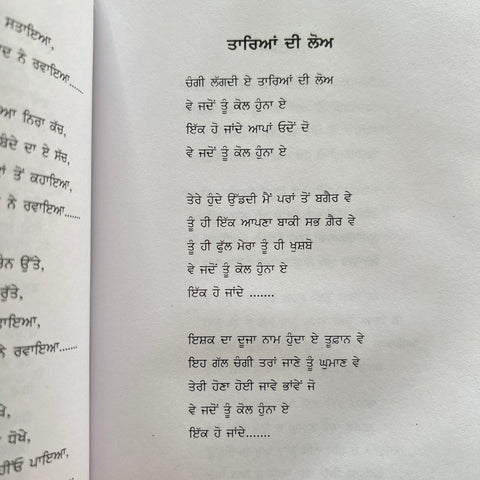 ਸਤਾਇਆ,
ਨੇ ਰਵਾਇਆ......
ਨਿਰਾ ਕੱਚ,
ਦਾ ਏ ਸੱਚ,
ਤੋਂ ਕਹਾਇਆ,
ਨੇ ਰਵਾਇਆ.......
ਉੱਤੇ,
ਰੁੱਤੇ,
ਨੇ ਰਵਾਇਆ......
ਧੋਖੇ,
ਪਾਇਆ,
ਤਾਰਿਆਂ ਦੀ ਲੋਅ
ਚੰਗੀ ਲੱਗਦੀ ਏ ਤਾਰਿਆਂ ਦੀ ਲੋਅ
ਵੇ ਜਦੋਂ ਤੂੰ ਕੋਲ ਹੁੰਨਾ ਏ
ਇੱਕ ਹੋ ਜਾਂਦੇ ਆਪਾਂ ਓਦੋਂ ਦੋ
ਵੇ ਜਦੋਂ ਤੂੰ ਕੋਲ ਹੁੰਨਾ ਏ
ਤੇਰੇ ਹੁੰਦੇ ਉੱਡਦੀ ਮੈਂ ਪਰਾਂ ਤੋਂ ਬਗੈਰ ਵੇ
ਤੂੰ ਹੀ ਇੱਕ ਆਪਣਾ ਬਾਕੀ ਸਭ ਗ਼ੈਰ ਵੇ
ਤੂੰ ਹੀ ਫੁੱਲ ਮੇਰਾ ਤੂੰ ਹੀ ਖੁਸ਼ਬੋ
ਵੇ ਜਦੋਂ ਤੂੰ ਕੋਲ ਹੁੰਨਾ ਏ
ਇੱਕ ਹੋ ਜਾਂਦੇ .......
ਇਸ਼ਕ ਦਾ ਦੂਜਾ ਨਾਮ ਹੁੰਦਾ ਏ ਤੂਫ਼ਾਨ ਵੇ
ਇਹ ਗੱਲ ਚੰਗੀ ਤਰਾਂ ਜਾਣੇ ਤੂੰ ਘੁਮਾਣ ਵੇ
ਤੇਰੀ ਹੋਣਾ ਹੋਈ ਜਾਵੇ ਭਾਂਵੇਂ ਜੋ
ਵੇ ਜਦੋਂ ਤੂੰ ਕੋਲ ਹੁੰਨਾ ਏ
ਇੱਕ ਹੋ ਜਾਂਦੇ.......